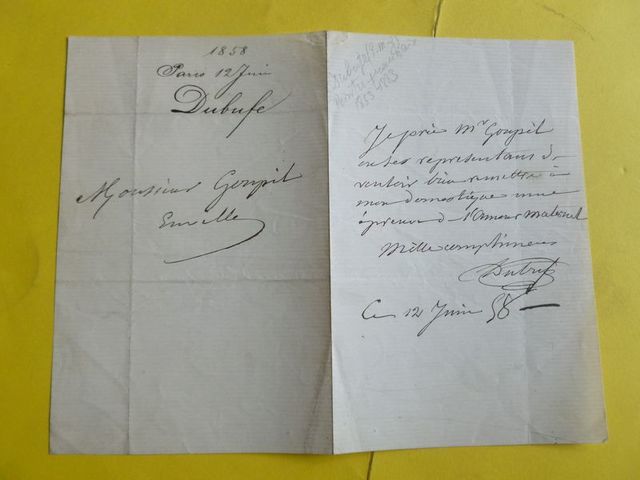 1858
Paris 12 Juin
Dubufe
Monsieur Goupil
En ville
Dubufe
peintre français
1853
Je prie Mr Goupil
ou ses représentans de
vouloir bien remettre à
mon domestique une
épreuve de l'Amour Maternel
Mille complimens
Dubufe
Ce 12 Juin 58